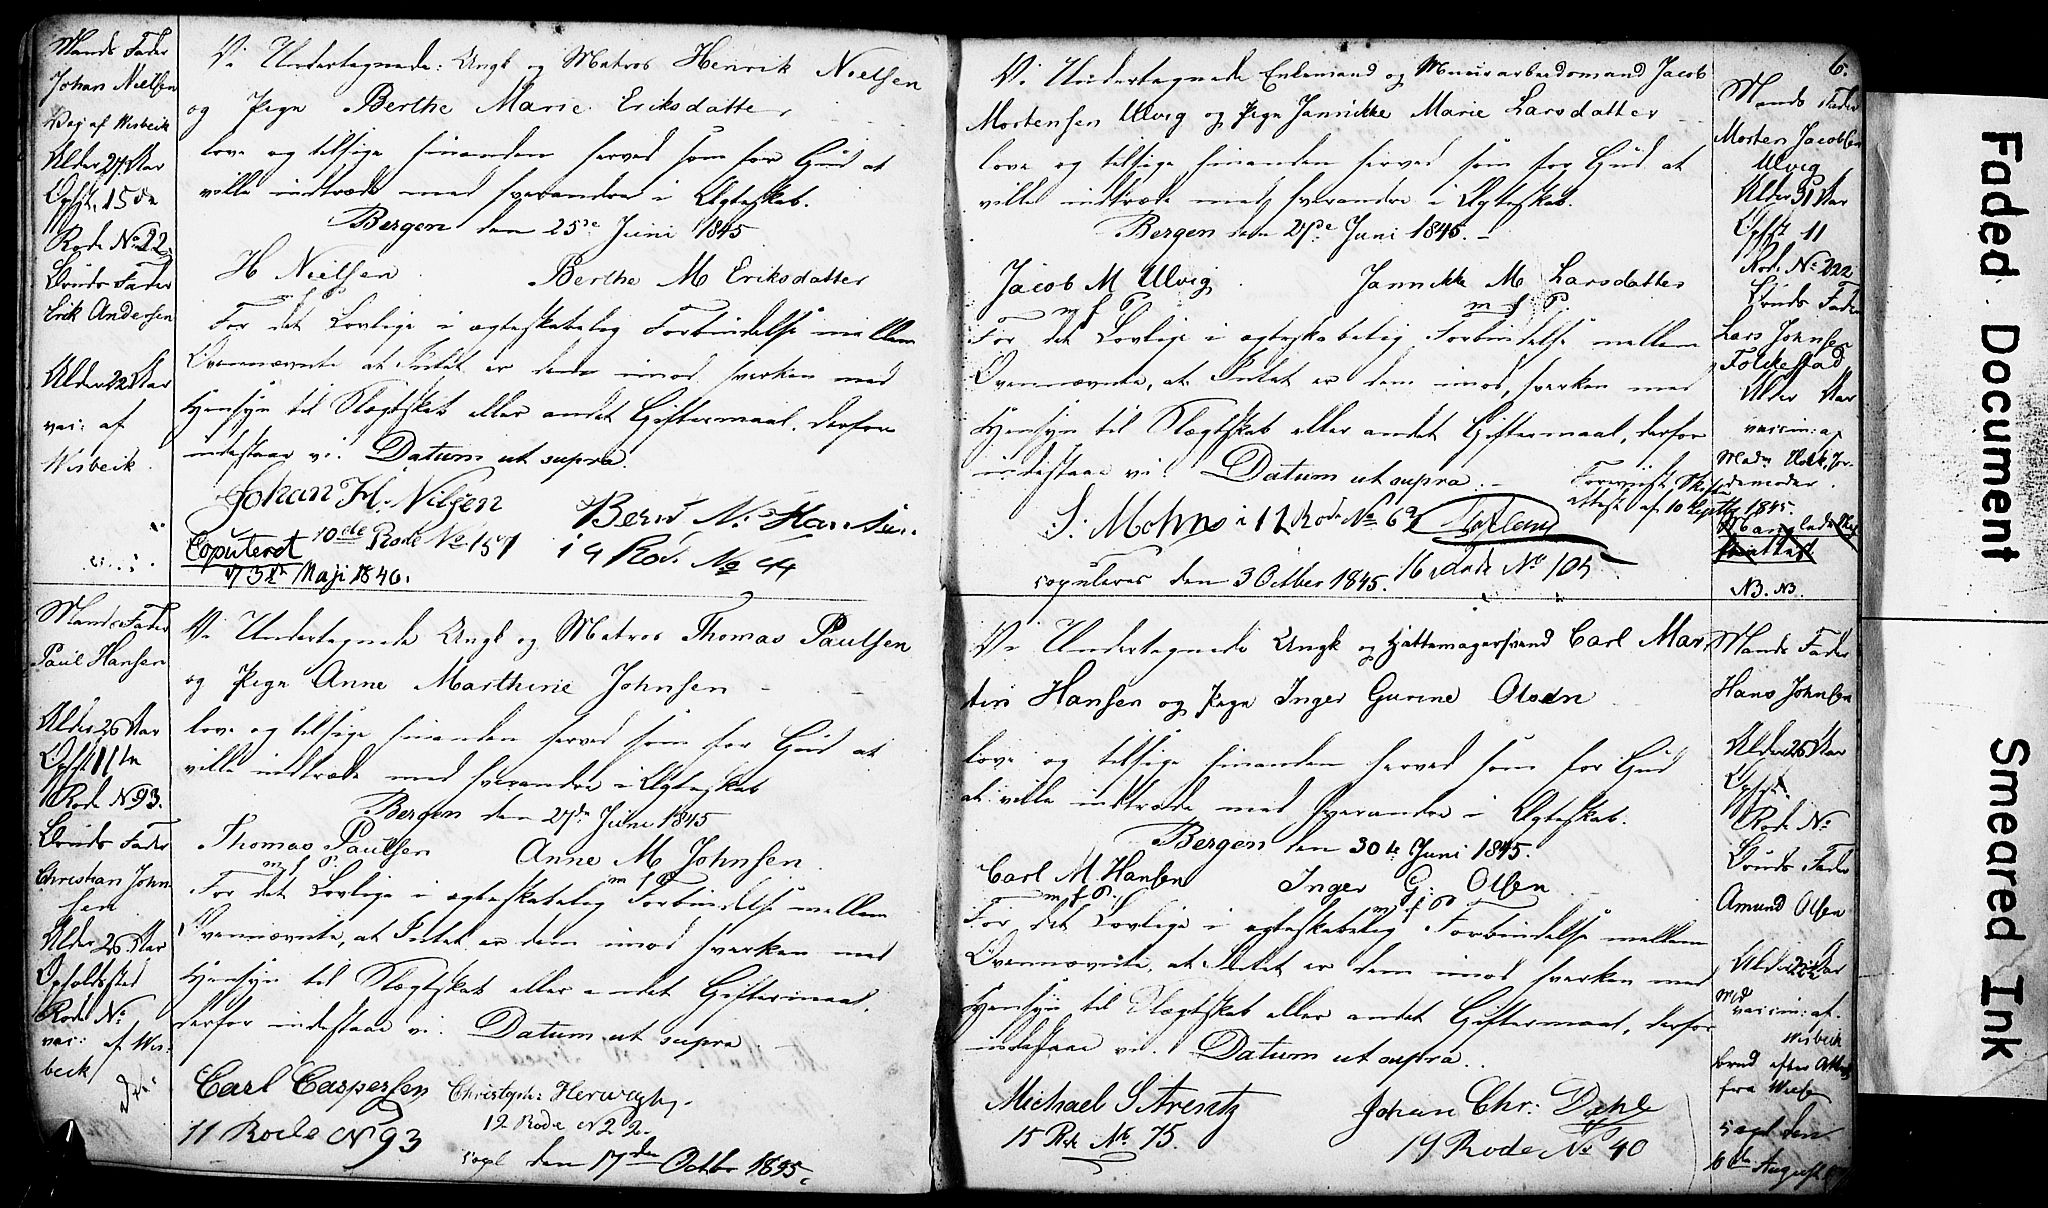 Mands Fader
Johan Nielsen
Vac: af Wisbeck
Alder 27 Aar
Opfst. 15de
Rode No 22
Bruds Fader
Erik Andersen
Alder 22 Aar
vac: af
Wisbeck
Vi Undertegnede: Ungk og Matros Henrik Nielsen
og Pige Berthe Marie Eriksdatter
love og tilsige hinanden herved som for Gud at
ville indtræde med hverandre i Ægteskab.
Bergen den 25de Juni 1845
H Nielsen Berthe M Eriksdatter
For det Lovlige i ægteskabelig Forbindelse mellem
Ovennævnte at Intet er dem imod hverken med
Hensyn til Slægtskab eller andet Giftermaal, derfor
indestaar vi. Datum ut supra.
Johan H. Nilsen Bernt N. Hansen
10de Rode No 157 i 9 Rod. No 44
Copuleret
d 31te Maji 1846.
Mands Fader
Paul Hansen
Alder 26 Aar
Opfst 11te
Rode No 93.
Bruds Fader
Christian John
sen
Alder 26 Aar
Opholdsted
Rode No
vac: af Wis-
beck
Vi Undertegnede Ungk og Matros Thomas Paulsen
og Pige Anne Marthine Johnsen
love og tilsige hinanden herved som for Gud at
ville indtræde med hverandre i Ægteskab
Bergen den 27de Juni 1845
Thomas Paulsen Anne M Johnsen
m f P m f P
For det Lovlige i ægteskabelig Forbindelse mellem
Ovennævnte, at Intet er dem imod hverken med
Hensyn til Slægtskab eller andet Giftermaal,
derfor indestaae vi. Datum ut supra
Carl Caspersen Christoph: Herwagh
11 Rode No 93 12 Rode No 22.
copl den 17den Octbr 1845.
6.
Vi Undertegnede Enkemand og Muurarbeidsmand Jacob
Mortensen Ulvig og Pige Jannikke Marie Larsdatter
love og tilsige hinanden herved som for Gud at
ville indtræde med hverandre i Ægteskab.
Bergen den 27de Juni 1845.
Jacob M Ulvig Jannikke M Larsdatter
m f P m f P.
For det Lovlige i ægteskabelig Forbindelse mellem
Ovennævnte, at Intet er dem imod, hverken med
Hensyn til Slægtskab eller andet Giftermaal, derfor
indestaae vi. Datum ut supra.
Foreviist Skifte
attest af 10 1845.
S: Mohns i 12 Rode No 69
16 Rode No 105
copuleres den 3 Octber 1845.
Mands Fader
Morten Jacobsen
Ulvig
Alder 31 Aar
Opfst 11
Rode No 222
Bruds Fader
Lars Johnsen
Folkestad
Alder Aar
vaccin: af
Madm Jor-
demoder.
NB. NB.
Vi Undertegnede Ungk og Hattemagersvend Carl Mar
tin Hansen og Pige Inger Gurine Olsen
love og tilsige hinanden herved som for Gud
at ville indtræde med hverandre i Ægteskab.
Bergen den 30te Juni 1845.
Carl M. Hansen Inger G: Olsen
m f P. m f P
For det Lovlige i ægteskabelig Forbindelse mellem
Ovennævnte, at Intet er dem imod hverken med
Hensyn til Slægtskab eller andet Giftermaal, derfor
indestaae vi. Datum ut supra.
Michael S Arentz Johan Chr: Dahle
15 Rode No 75. 19 Rode No 40
Mands Fader
Hans Johnsen
Alder 26 Aar
Opfst.
Rode No
Bruds Fader
Amund Olsen
Alder 22 Aar
vaccin: af
Wisbeck
brud efter Attest
fra
copl den
6te August
Faded Document
Smeared Ink